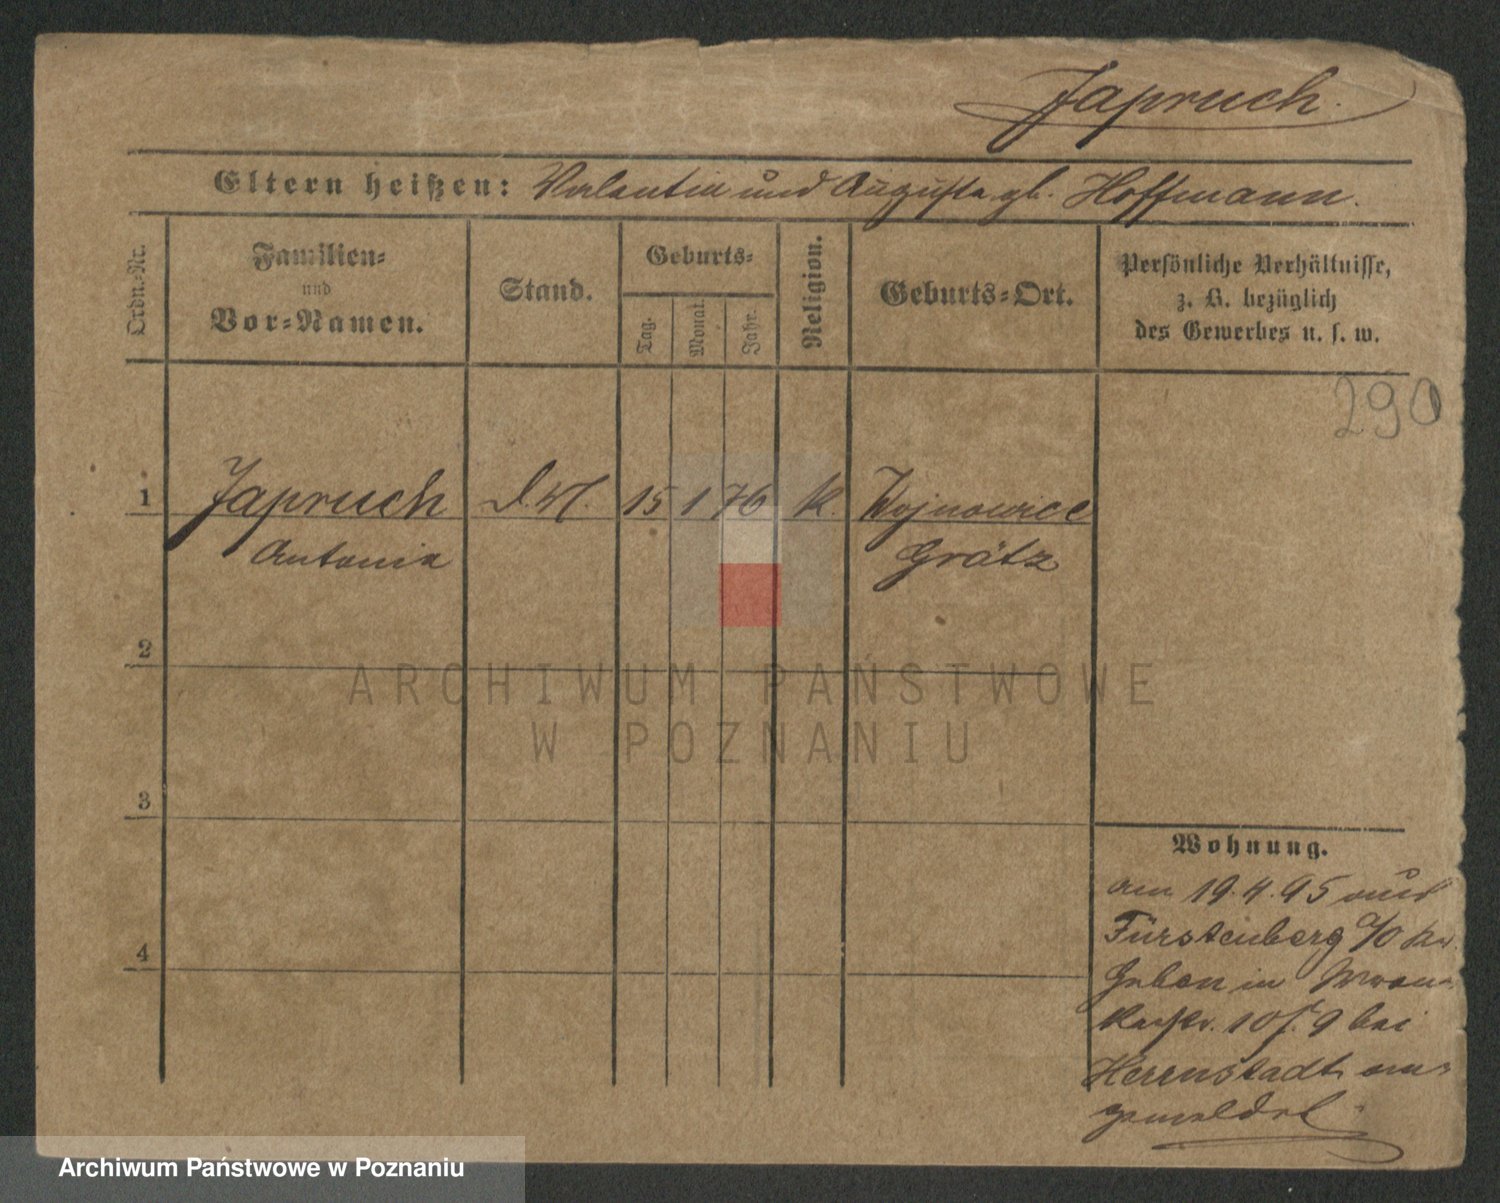 Japruch.
Eltern heißen: Valentin und Augusta gb. Hoffmann.
Ordn.-Nr.
Familien-
und
Vor-Namen.
Stand.
Geburts-
Tag.
Monat.
Jahr.
Religion.
Geburts-Ort.
Persönliche Verhältnisse,
z. B. bezüglich
des Gewerbes u. s. w.
290
1 Japruch d. M. 15 1 76 k. Wojnowice
Antonia Grätz
2
3
4
Wohnung.
am 19.4.95 aus
Fürstenberg a/O
in
10 9 bei
Herrnstadt an-
gemeldet
ARCHIWUM PAŃSTWOWE
W POZNANIU
Archiwum Państwowe w Poznaniu